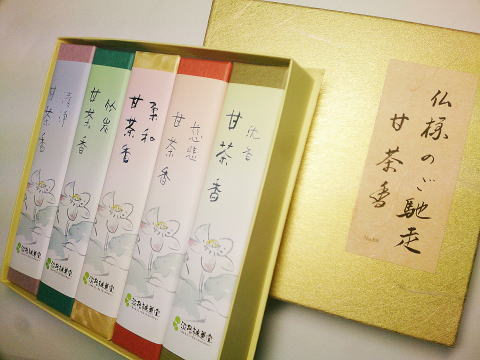 清浄
甘茶香
竹炭
甘茶香
柔和
甘茶香
慈悲
甘茶香
沈香
甘茶香
仏様のご馳走
甘茶香